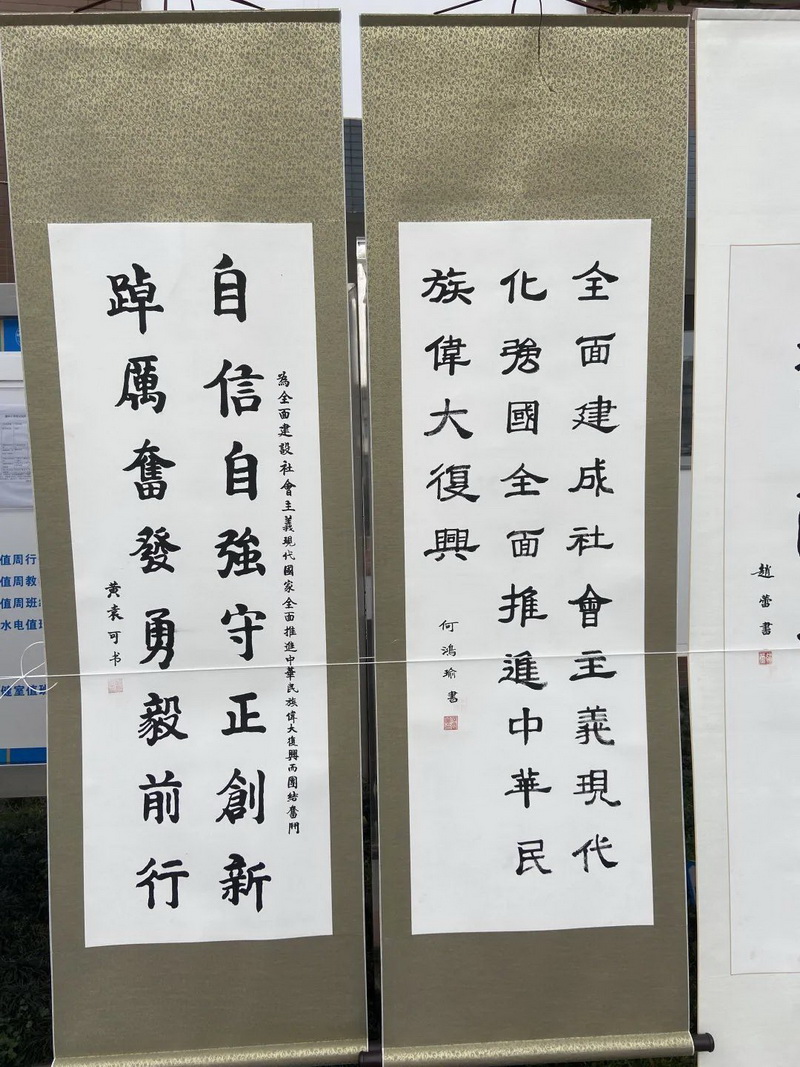 為全面建設社會主義現代國家全面推進中華民族偉大復興而團結奮鬥
自信自強守正創新
踔厲奮發勇毅前行
黄袁可书
全面建成社會主義現代
化強國全面推進中華民
族偉大復興
何鴻瑜書
趙蕾書
值周行
值周教
值周班
水电值班
室值班